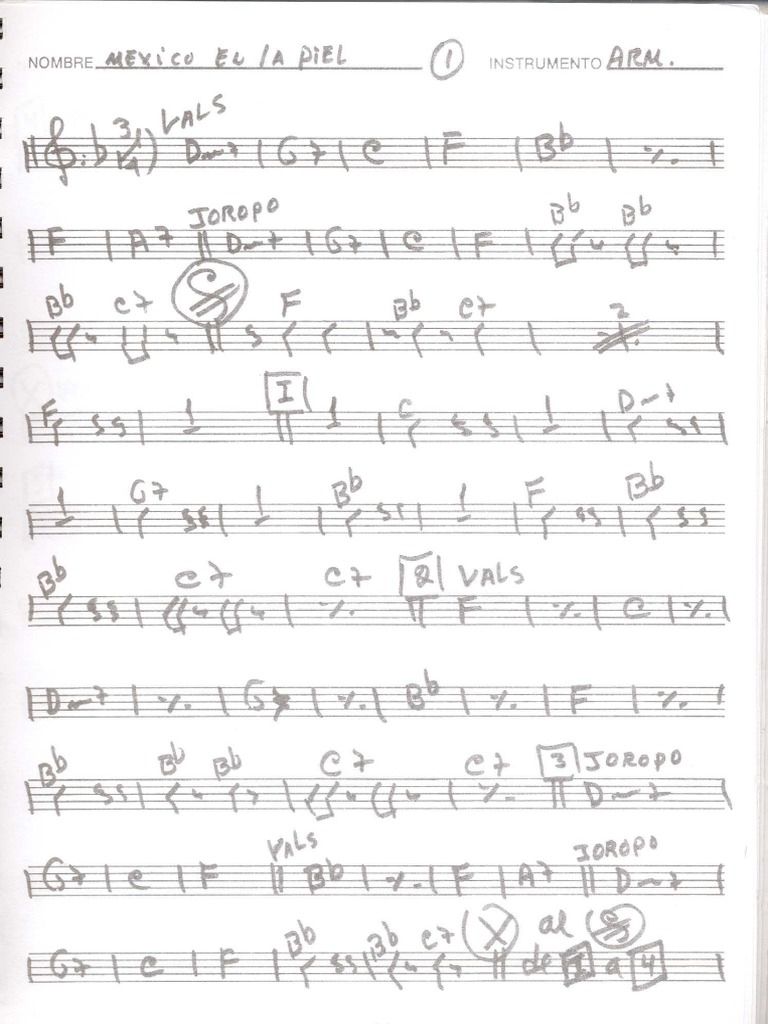 NOMBRE MEXICO EN LA PIEL 1 INSTRUMENTO ARM.
3/4 VALS
Dm7 | G7 | C | F | Bb | ٪ |
JOROPO Bb Bb
F | A7 || Dm7 | G7 | C | F |
Bb C7 F Bb C7 2
I
F C Dm7
G7 Bb F Bb
Bb C7 C7 2 VALS
F | ٪ | C | ٪ |
Dm7 | ٪ | G7 | ٪ | Bb | ٪ | F | ٪
Bb Bb Bb C7 C7 3 JOROPO
Dm7
VALS JOROPO
G7 | C | F || Bb | ٪ | F | A7 || Dm7
Bb Bb C7 X al
G7 | C | F de I a 4